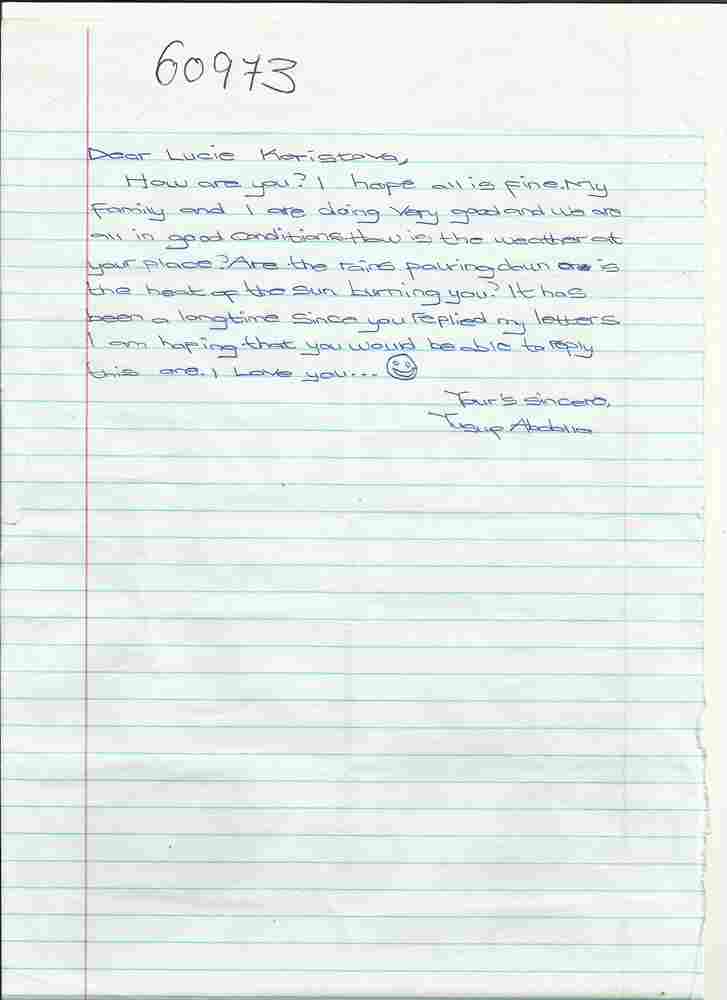 60973
Dear Lucie Koristova,
How are you? I hope all is fine. My
family and I are doing very good and we are
all in good conditions. How is the weather at
your place? Are the rains pouring down or is
the heat of the sun burning you? It has
been a long time since you replied my letters
I am hoping that you would be able to reply
this one. I Love you...
Your's sincere,
Yusup Abdalla